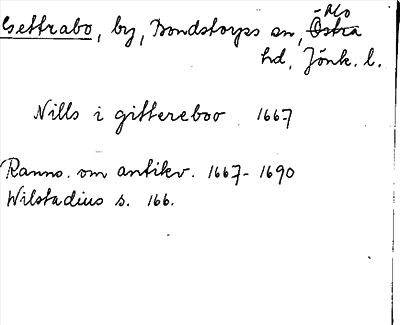 Gettrabo, by, Bondstorps sn, Östra Mo
hd, Jönk. l.
Nills i gittereboo 1667
Ranns. om antikv. 1667-1690
Wilstadius s. 166.